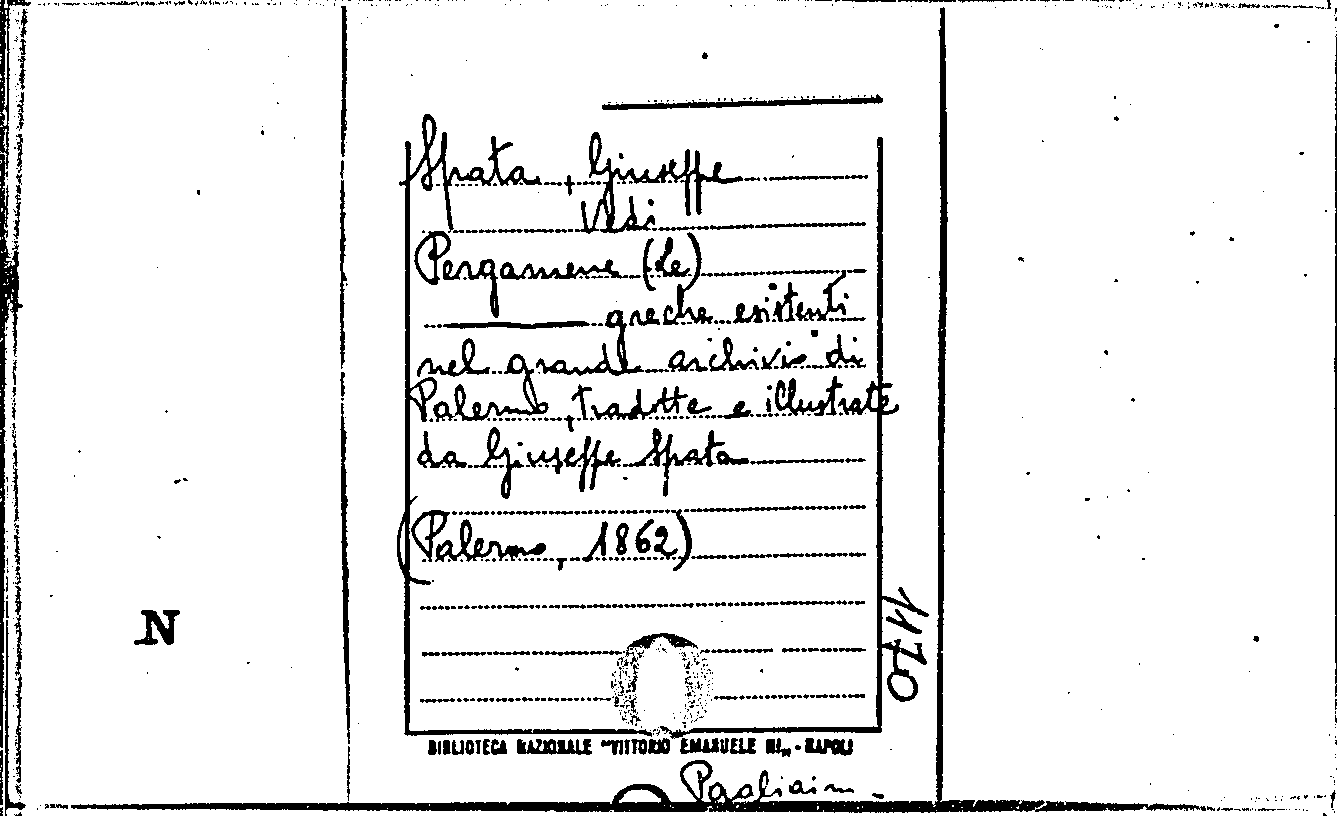 Spata, Giuseppe
Vedi
Pergamene (Le)
greche esistenti
nel grande archivio di
Palermo, tradotte e illustrate
da Giuseppe Spata
(Palermo, 1862)
N
1170
BIBLIOTECA NAZIONALE "VITTORIO EMANUELE III„ - NAPOLI